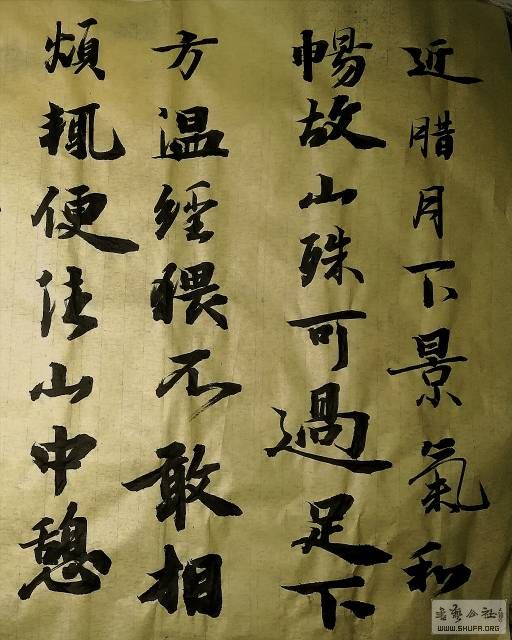 近腊月下景氣和
暢故山殊可過足下
方温經猥不敢相
煩輒便往山中憩
WWW.SHUFA.ORG